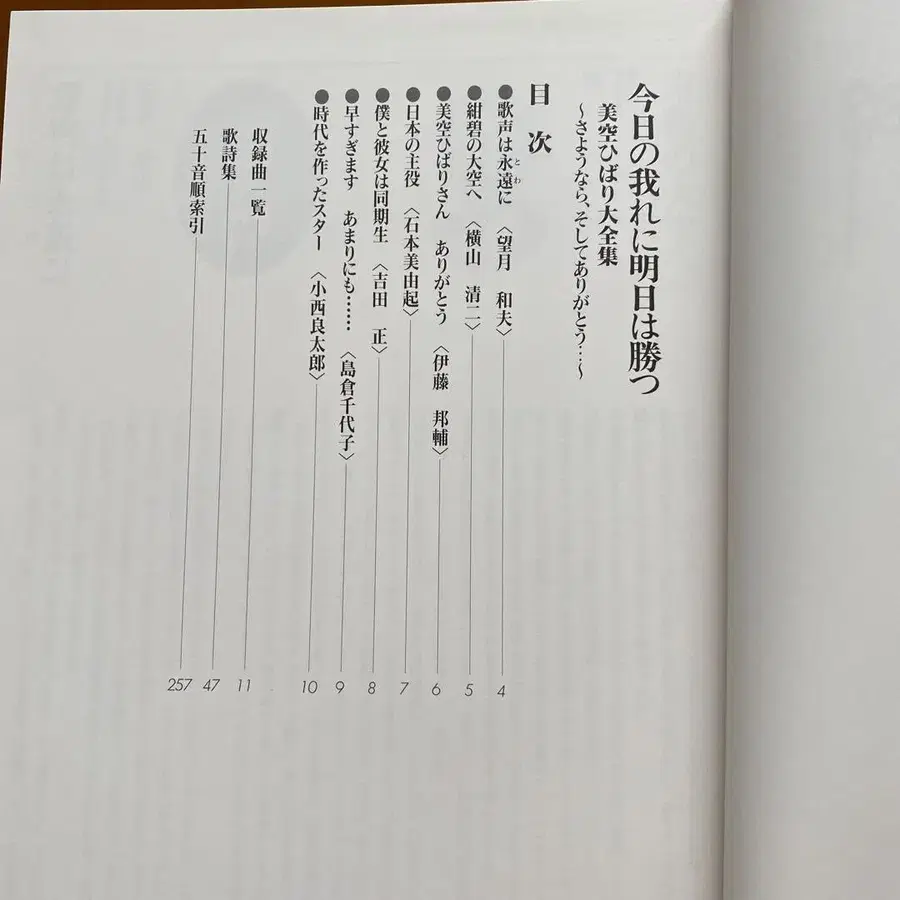 今日の我れに明日は勝つ
美空ひばり大全集
～さようなら、そしてありがとう…～
目次
●歌声は永遠に 〈望月 和夫〉 4
とわ
●紺碧の大空へ 〈横山 清二〉 5
●美空ひばりさん ありがとう 〈伊藤 邦輔〉 6
●日本の主役 〈石本美由起〉 7
●僕と彼女は同期生 〈吉田 正〉 8
●早すぎます あまりにも…… 〈島倉千代子〉 9
●時代を作ったスター 〈小西良太郎〉 10
収録曲一覧 11
歌詩集 47
五十音順索引 257